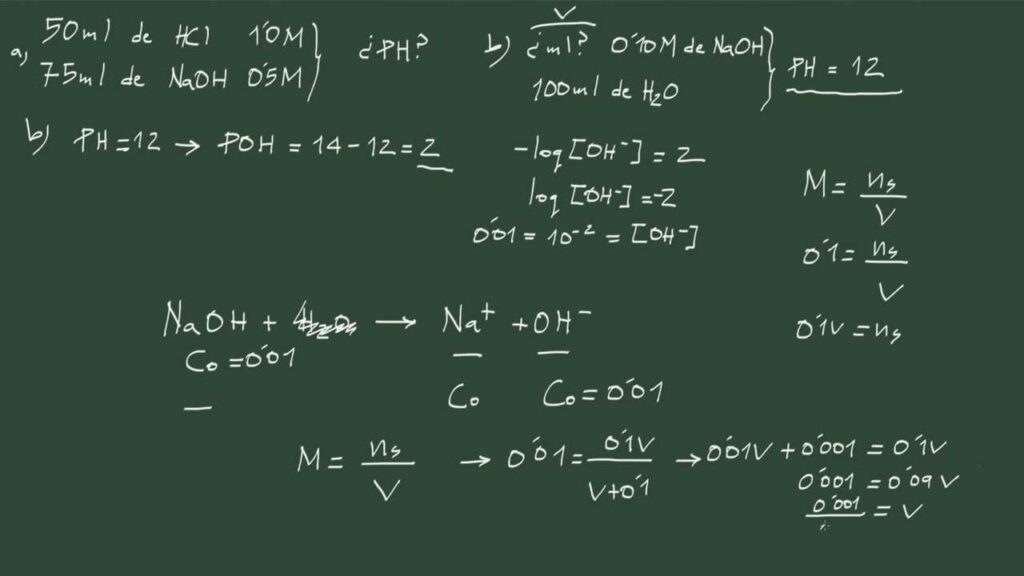 a) 50ml de HCl 1'0M } ¿PH?
75ml de NaOH 0'5M
b) V
¿ml? 0'10M de NaOH } PH = 12
100ml de H₂O
b) PH=12 → POH = 14-12=2
-log[OH⁻]=2
log[OH⁻]=-2
0'01 = 10⁻² = [OH⁻]
M = ns/V
0'1 = ns/V
0'1V = ns
NaOH + H₂O → Na⁺ + OH⁻
C₀ = 0'01
C₀ C₀ = 0'01
M = ns/V → 0'01 = 0'1V/V+0'1 → 0'01V + 0'001 = 0'1V
0'001 = 0'09V
0'001/ = V